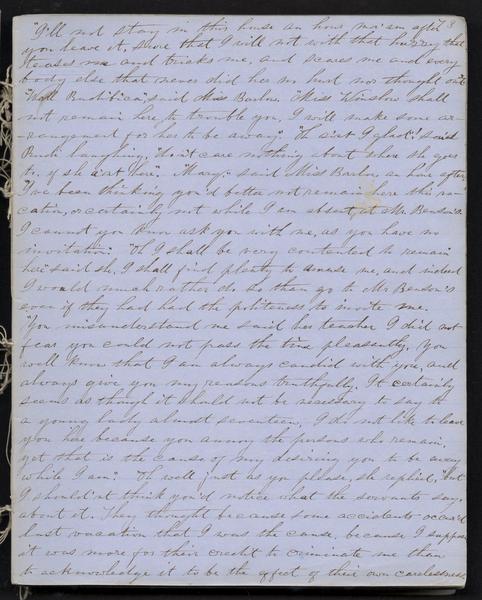 "I'll not stay in this house an hour ma'am after 73
you leave it, sure that I will not with that huzzey that
teases me and tricks me, and scares me and every
body else that never did her no hurt nor thought on't
"Well Buditica", said Miss Barlow, "Miss Winslow shall
not remain here to trouble you, I will make some ar-
-rangement for her to be away." "Oh aint I glad", said
laughing, "don't care nothing about where she goes
to, if she ain't here". Mary said Miss Barlow, an hour after,
"I've been thinking you'd better not remain here this va-
cation, or certainly not while I am absent, at Mr. Benson's
I cannot you know ask you with me, as you have no
invitation." "Oh I shall be very contented to remain
here" said she, I shall find plenty to amuse me, and indeed
I would much rather do so than go to Mr. Benson's
even if they had had the politeness to invite me.
"You misunderstand me said her teacher I did not
fear you could not pass the time pleasantly, You
well know that I am always candid with you, and
always give you my reasons truthfully. It certainly
seems as though it should not be necessary to say to
a young lady almost seventeen, I do not like to leave
you here because you annoy the persons who remain,
yet that is the cause of my desiring you to be away
while I am." "Oh well just as you please, she replied, "but
I should'nt think you'd notice what the servants say,
about it. They thought because some accidents occur'd
last vacation that I was the cause, because I suppose
it was more for their credit to criminate me than
to acknowledge it to be the effect of their own carelessness